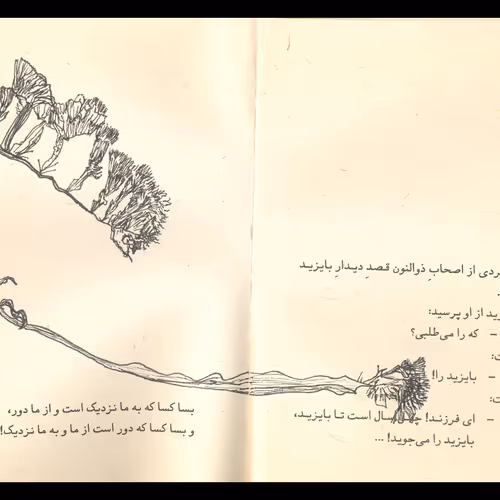 از اصحابِ ذوالنون قصدِ دیدارِ بایزید
از او پرسید:
– که را می‌طلبی؟
– بایزید را!
– ای فرزند! چهل سال است تا بایزید،
بایزید را می‌جوید! ...
بسا کسا که به ما نزدیک است و از ما دور،
و بسا کسا که دور است از ما و به ما نزدیک!